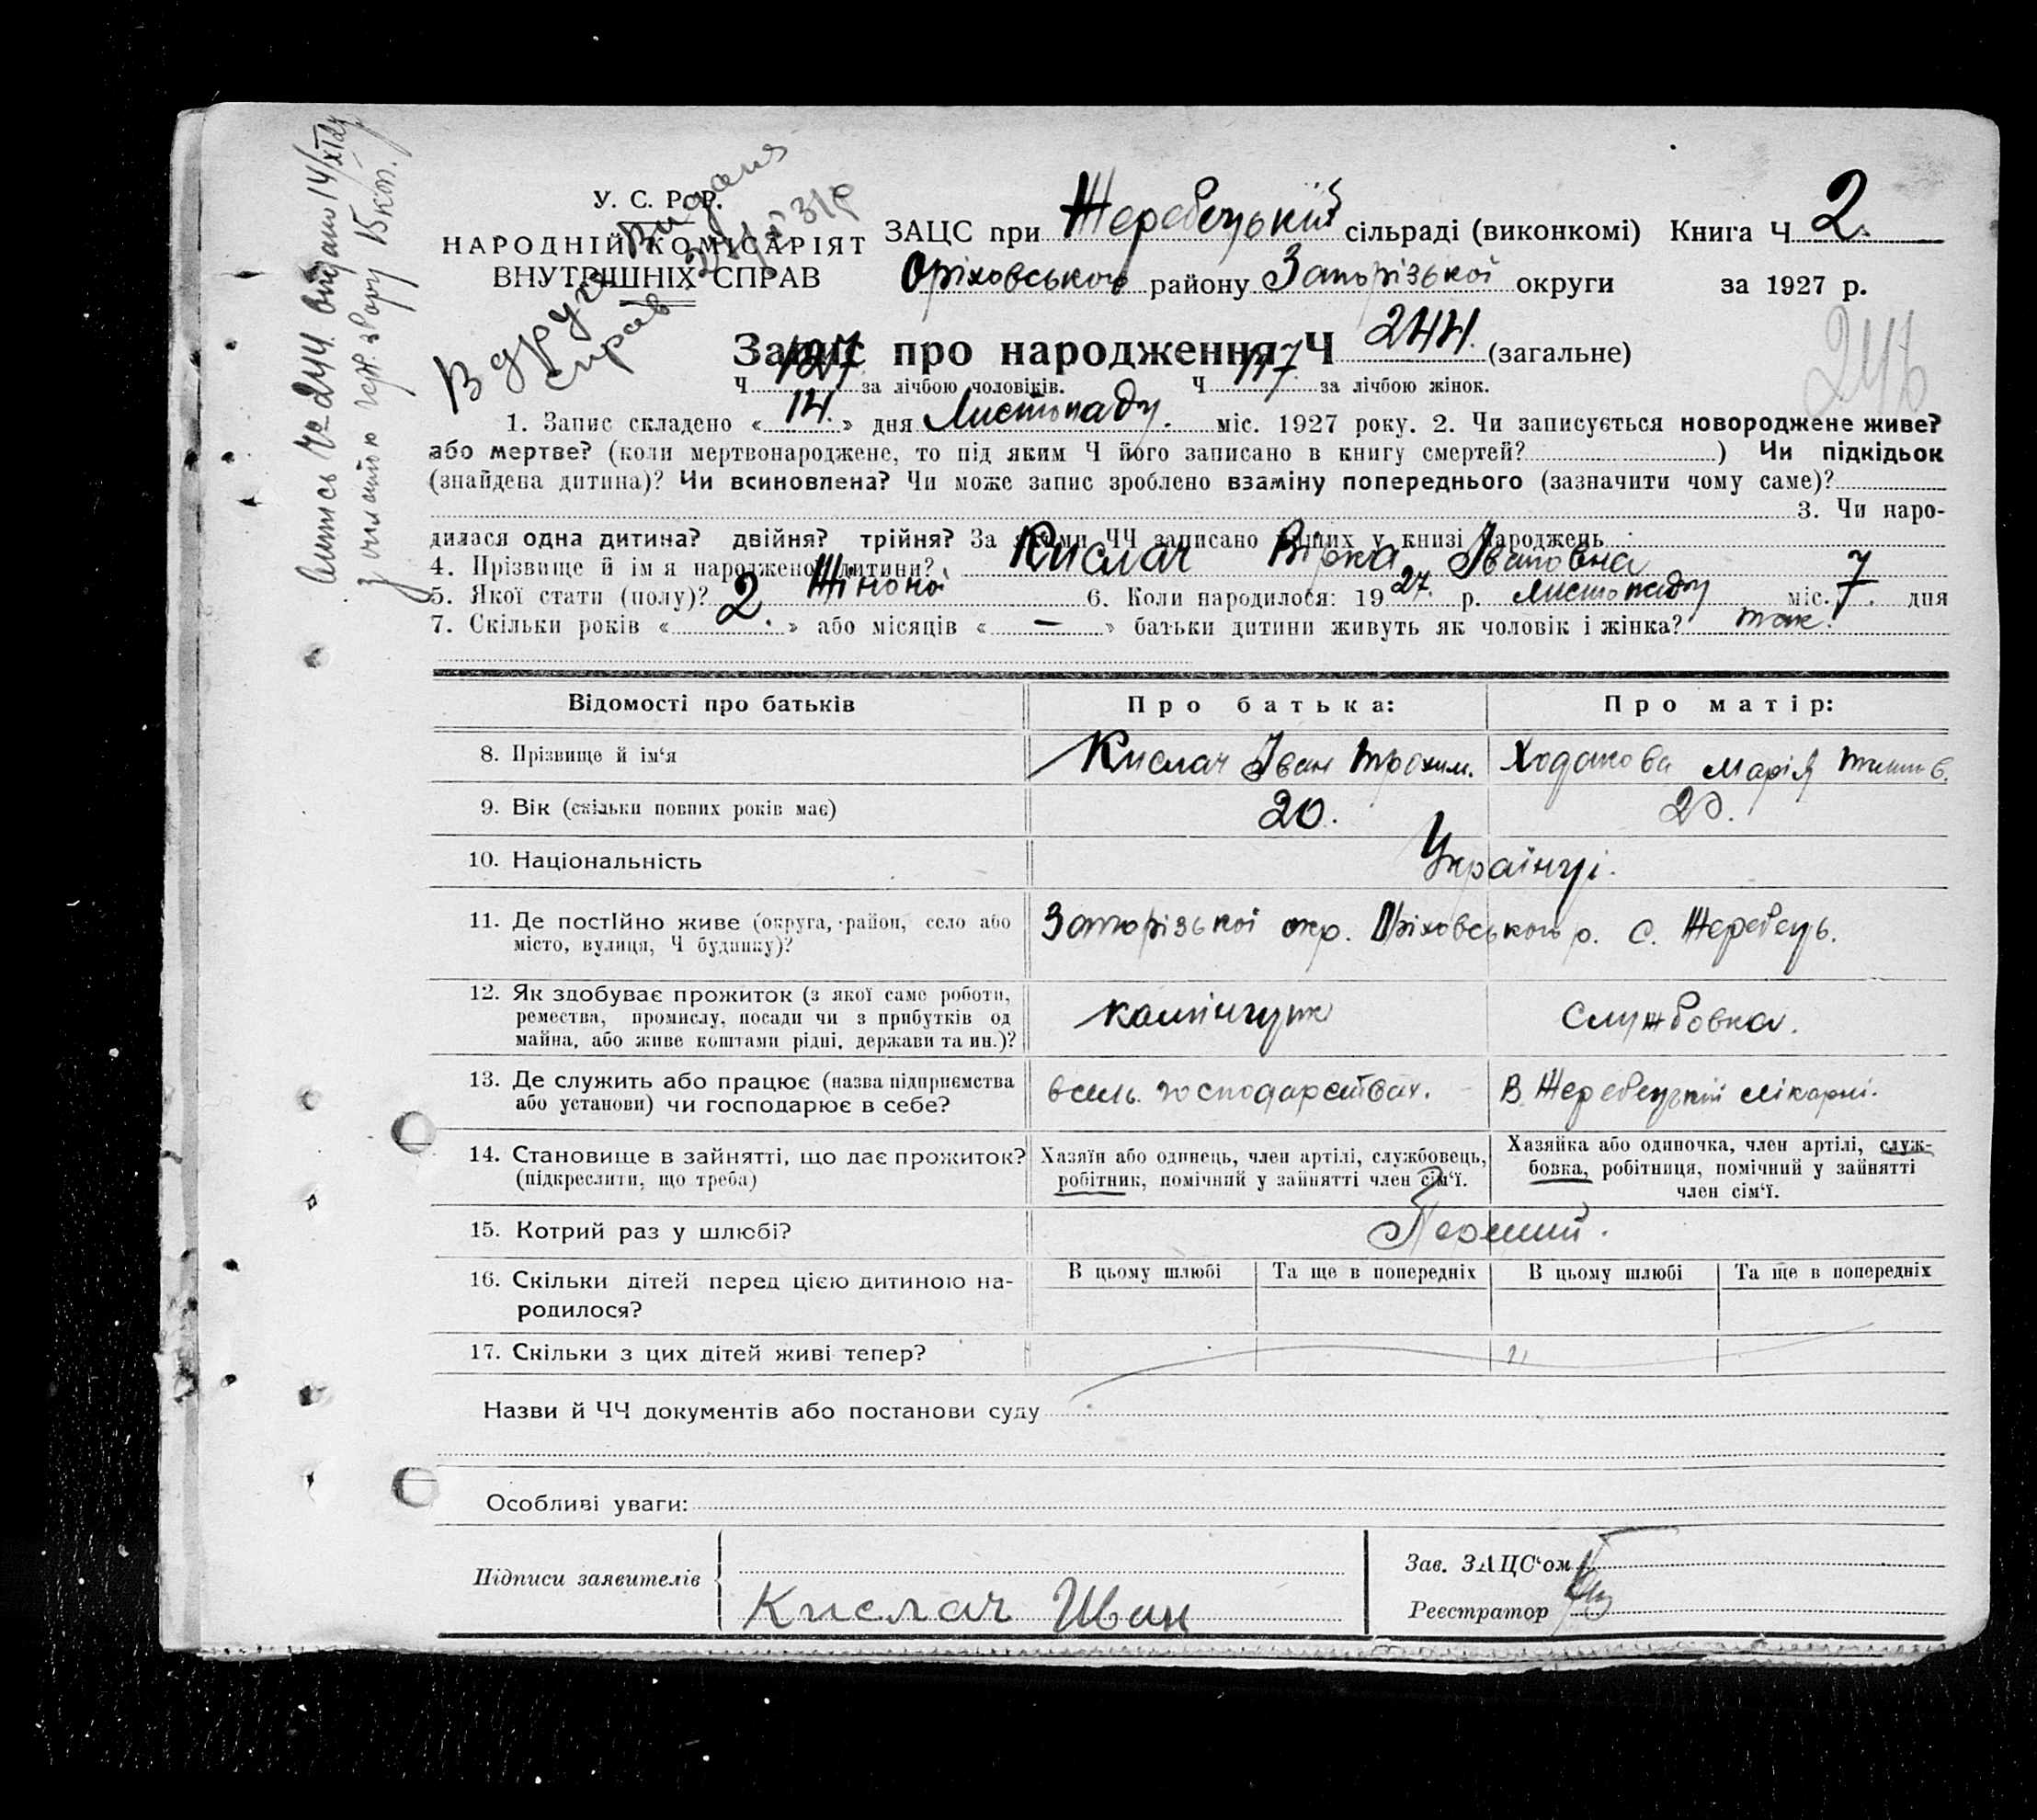 Випись Ч 244 видано 14/XI 27
з оплатою герб. збору 15 коп.
Вдруге видана
справ
У. С. Р. Р.
НАРОДНІЙ КОМІСАРІЯТ
ВНУТРІШНІХ СПРАВ
ЗАЦС при Жеребецькій сільраді (виконкомі) Книга Ч 2.
Оріховського району Запорізької округи за 1927 р.
Запис про народження Ч 244. (загальне)
246
Ч 127 за лічбою чоловіків. Ч 117. за лічбою жінок.
1. Запис складено « 14. » дня Листопаду. міс. 1927 року. 2. Чи записується новороджене живе?
або мертве? (коли мертвонароджене, то під яким Ч його записано в книгу смертей? ) Чи підкідьок
(знайдена дитина)? Чи всиновлена? Чи може запис зроблено взаміну попереднього (зазначити чому саме)?
3. Чи наро-
дилася одна дитина? двійня? трійня? За якими ЧЧ записано інших у книзі народжень
4. Прізвище й ім я народженої дитини? Кислач Вірка Івановна
5. Якої стати (полу)? Жіночої 6. Коли народилося: 1927. р. Листопаду міс. 7. дня
7
7. Скільки років « 2. » або місяців « — » батьки дитини живуть як чоловік і жінка? так.
Відомості про батьків Про батька: Про матір:
8. Прізвище й ім‘я Кислач Іван Трохим. Ходакова Марія Тимоф.
9. Вік (скільки повних років має) 20. 20.
10. Національність Українці.
11. Де постійно живе (округа, район, село або Запорізької окр. Оріховського р. с. Жеребець.
місто, вулиця, Ч будинку)?
12. Як здобуває прожиток (з якої саме роботи,
ремества, промислу, посади чи з прибутків од Службовка.
майна, або живе коштами рідні, держави та ин.)?
13. Де служить або працює (назва підприємства в сель. господарствах. В Жеребецькій лікарні.
або установи) чи господарює в себе?
14. Становище в зайнятті, що дає прожиток? Хазяїн або одинець, член артілі, службовець, Хазяйка або одиночка, член артілі, служ-
(підкреслити, що треба) робітник, помічний у зайнятті член сім‘ї. бовка, робітниця, помічний у зайнятті
член сім‘ї.
15. Котрий раз у шлюбі? Перший.
16. Скільки дітей перед цією дитиною на- В цьому шлюбі Та ще в попередніх В цьому шлюбі Та ще в попередніх
родилося?
17. Скільки з цих дітей живі тепер?
Назви й ЧЧ документів або постанови суду
Особливі уваги:
Підписи заявителів Зав. ЗАЦС‘ом
Кислач Иван Реєстратор